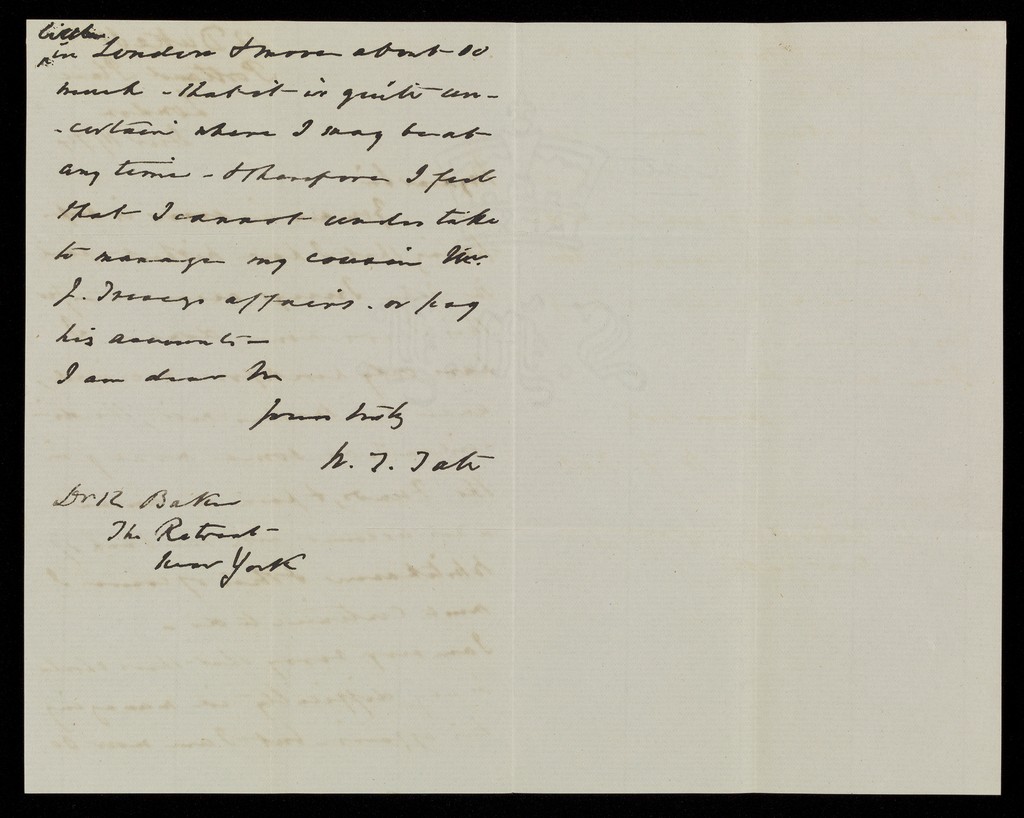 little
in London & move about so
much - that it is quite un-
-certain where I may be at
any time - & therefore I feel
that I cannot undertake
to manage my cousin Mr.
J. affairs. or pay
his accounts -
I am dear Sir
Yours truly
W. T. Tate
Dr R Baker
The Retreat
near York